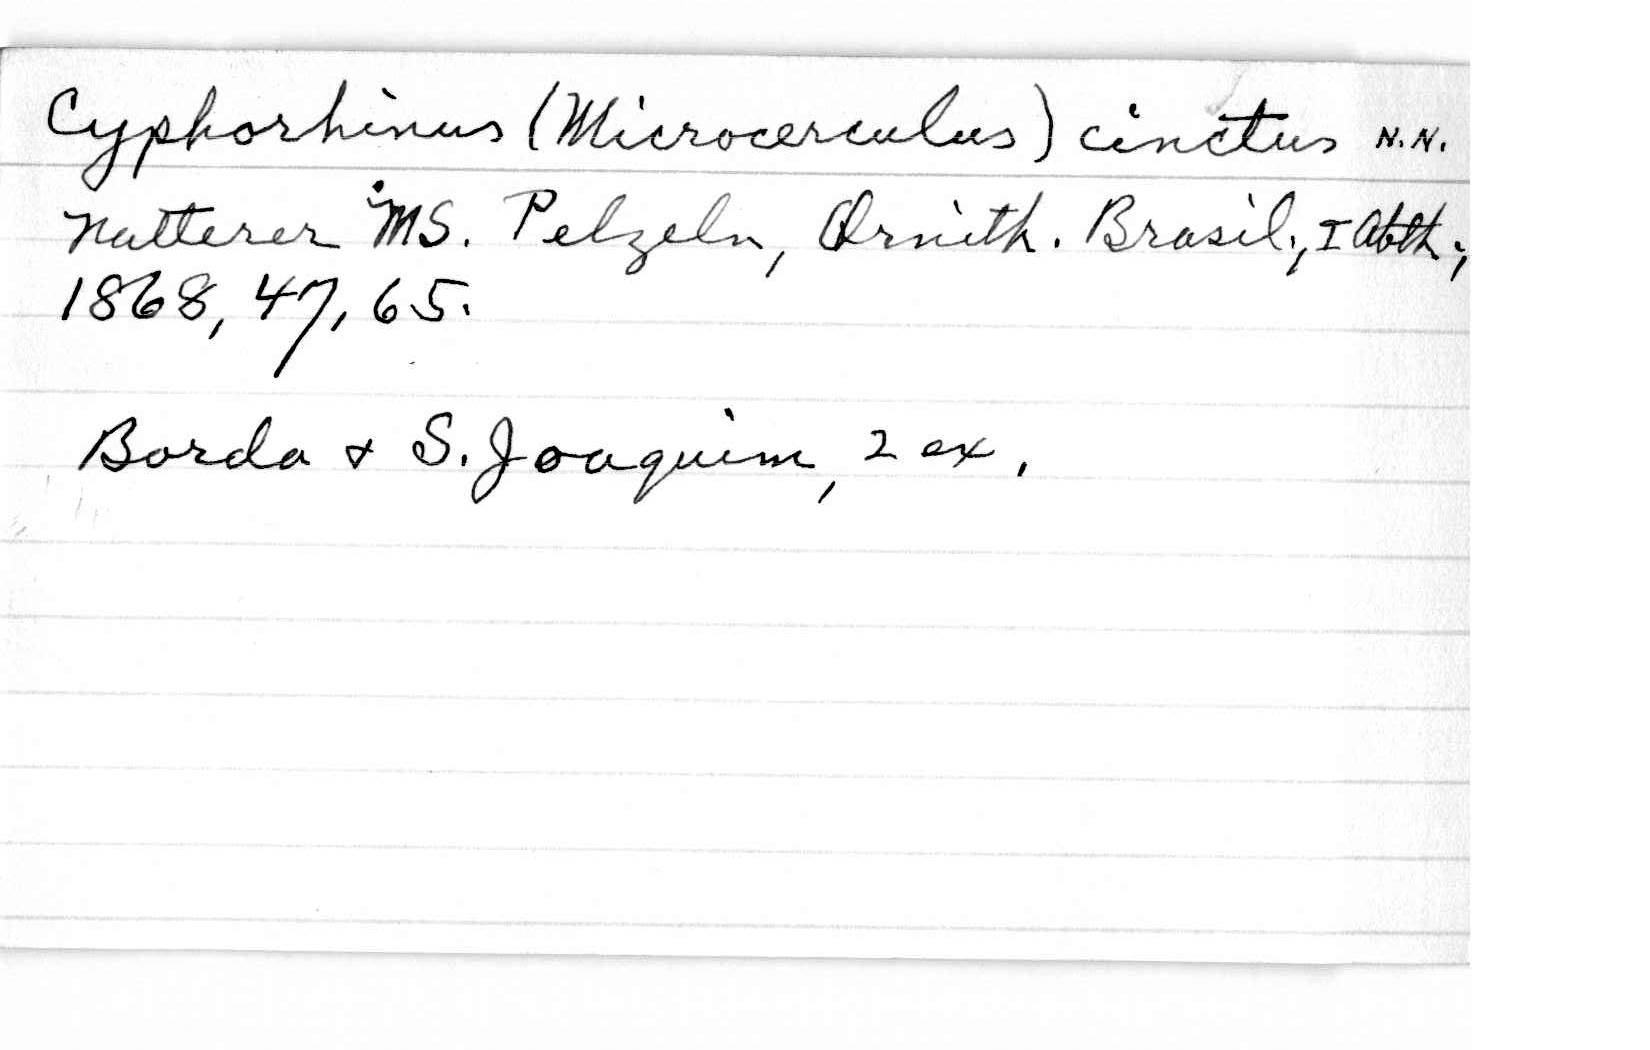 Cyphorhinus (Microcerculus) cinctus N.N.
Natterer MS. Pelzeln, Ornith. Brasil., I Abth.,
1868, 47, 65.
Borda & S. Joaquim, 2 ex.